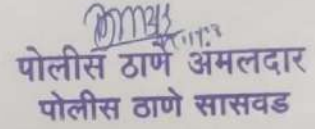 पोलीस ठाणे अंमलदार
पोलीस ठाणे सासवड